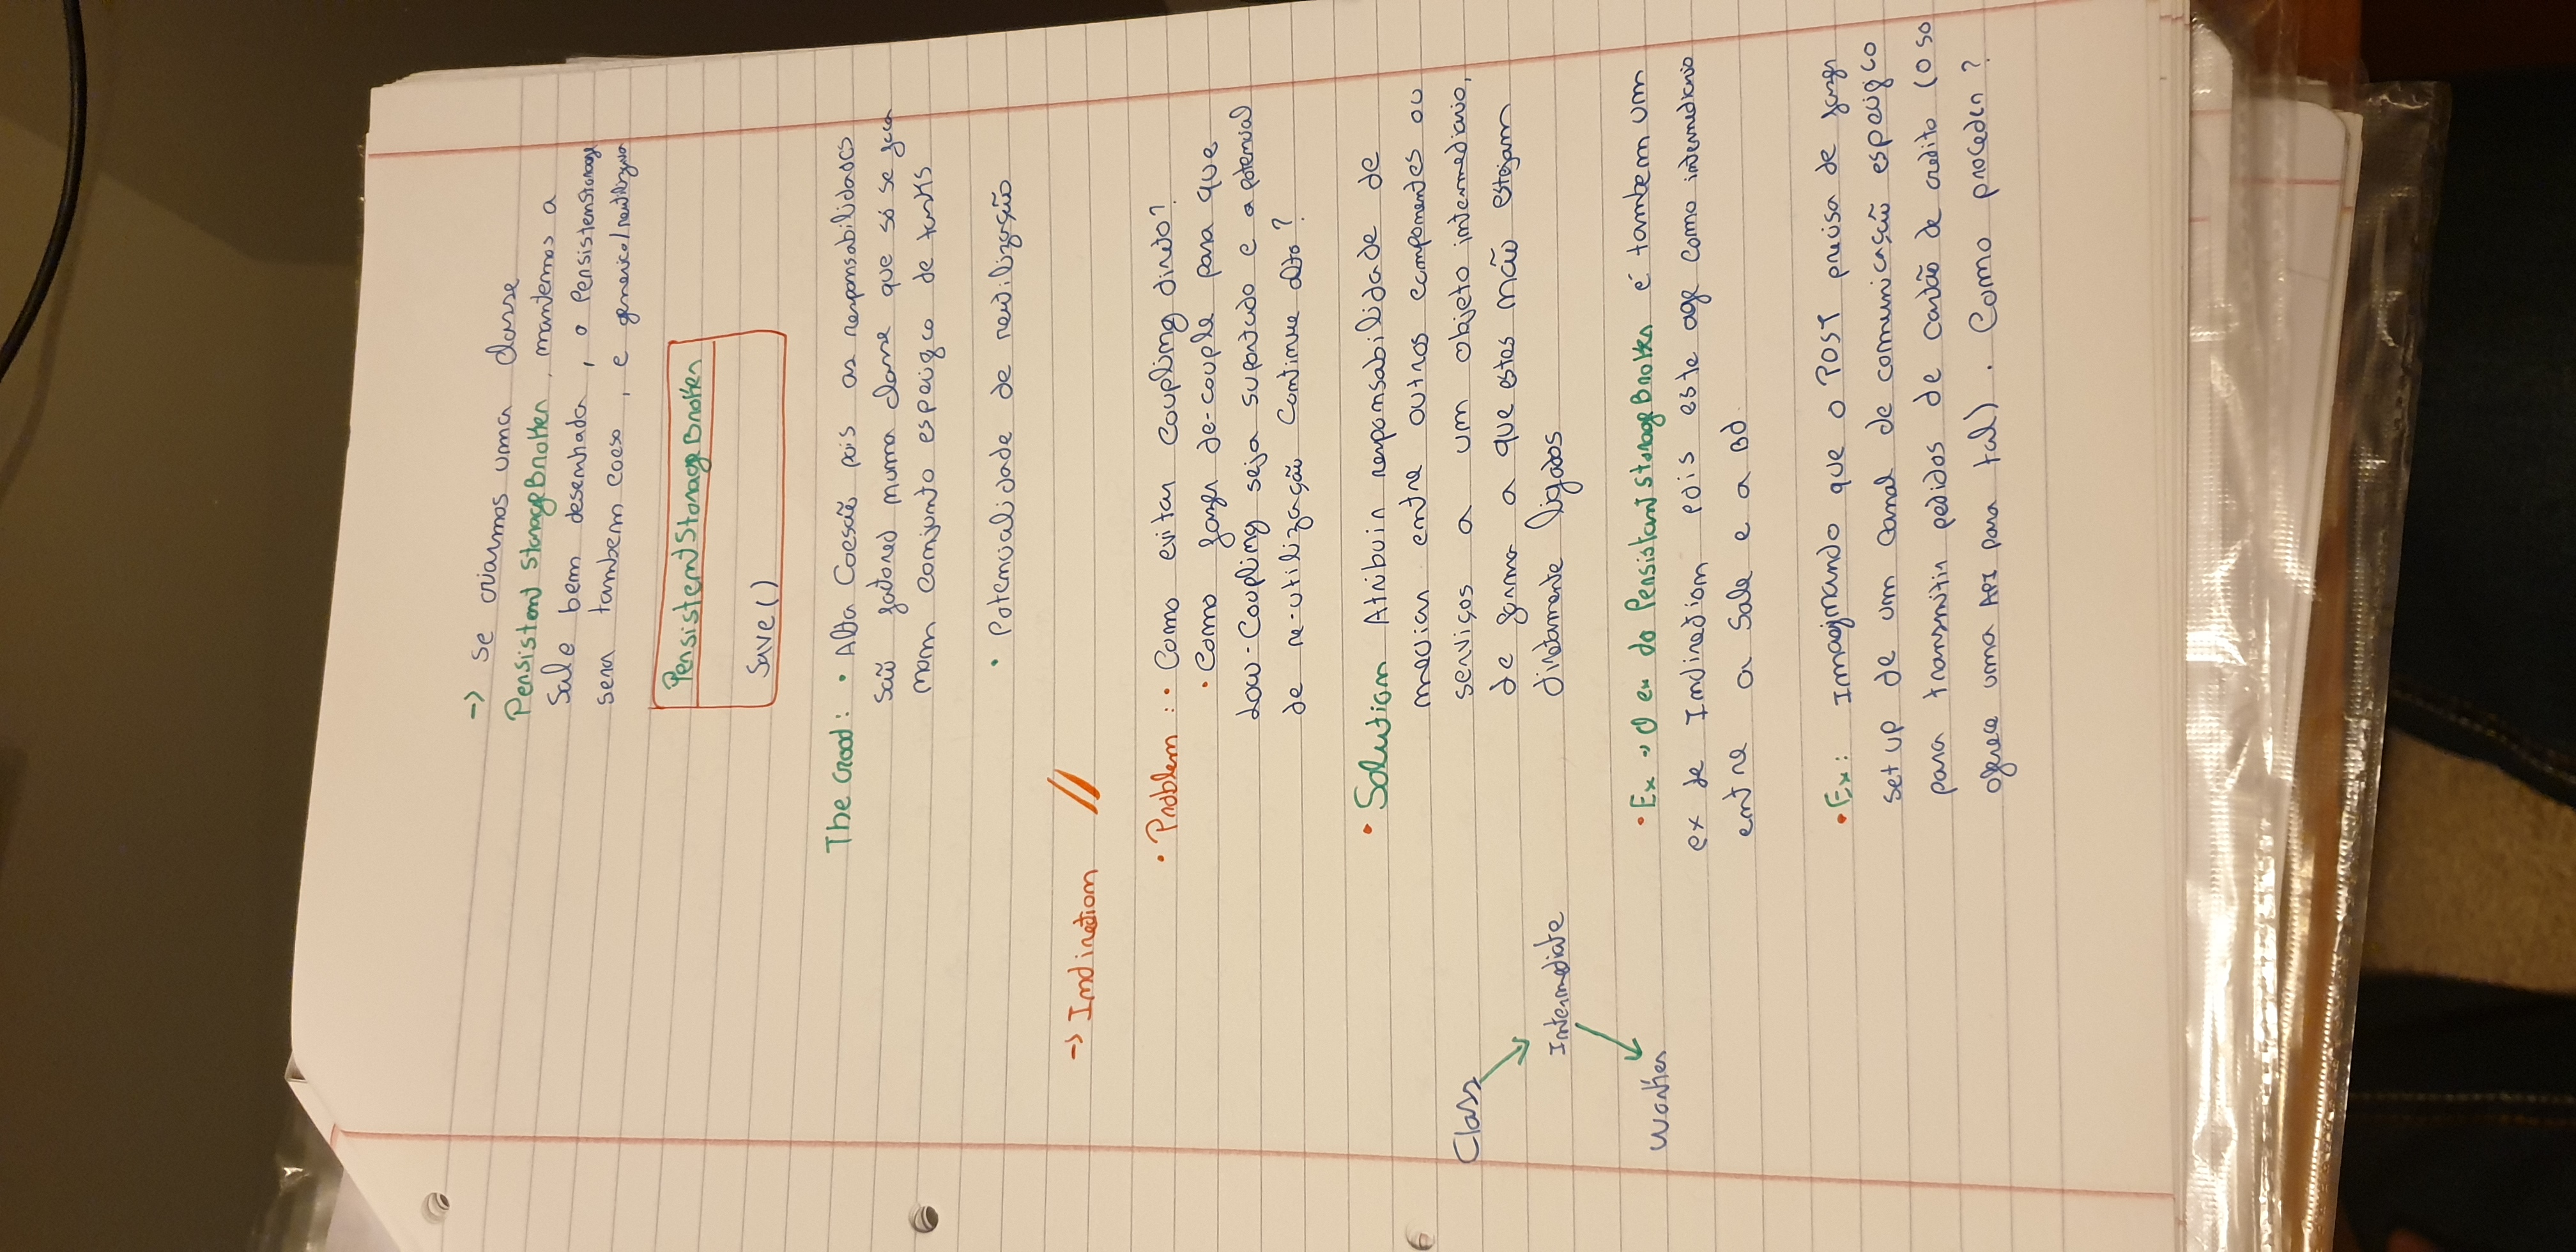 -> Se criarmos uma classe
Persistent StorageBroker, mantemos a
Sale bem desenhada, o PersistenStorage
sera tambem coeso, e generico/reutilizavel
PersistentStorageBroker
Save()
The Good: • Alta Coesão pois as responsabilidades
são factored numa classe que só se foca
num conjunto especifico de tasks
• Potencialidade de reutilização
-> Indirection //
• Problem: • Como evitar coupling direto?
• Como fazer de-couple para que
Low-Coupling seja suportado e a potencial
de re-utilização continue alto?
• Solution Atribuir responsabilidade de
mediar entre outros componentes ou
serviços a um objeto intermediario,
de forma a que estes não estejam
diretamente ligados
Class
Intermediate
Worker
• Ex -> O ex do PersistantStorageBroker é tambem um
ex de Indirection pois este age como intermediario
entre a Sale e a BD.
• Ex: Imaginando que o POST precisa de fazer
set up de um canal de comunicação especifico
para transmitir pedidos de cartão de credito (o SO
oferece uma API para tal). Como proceder?